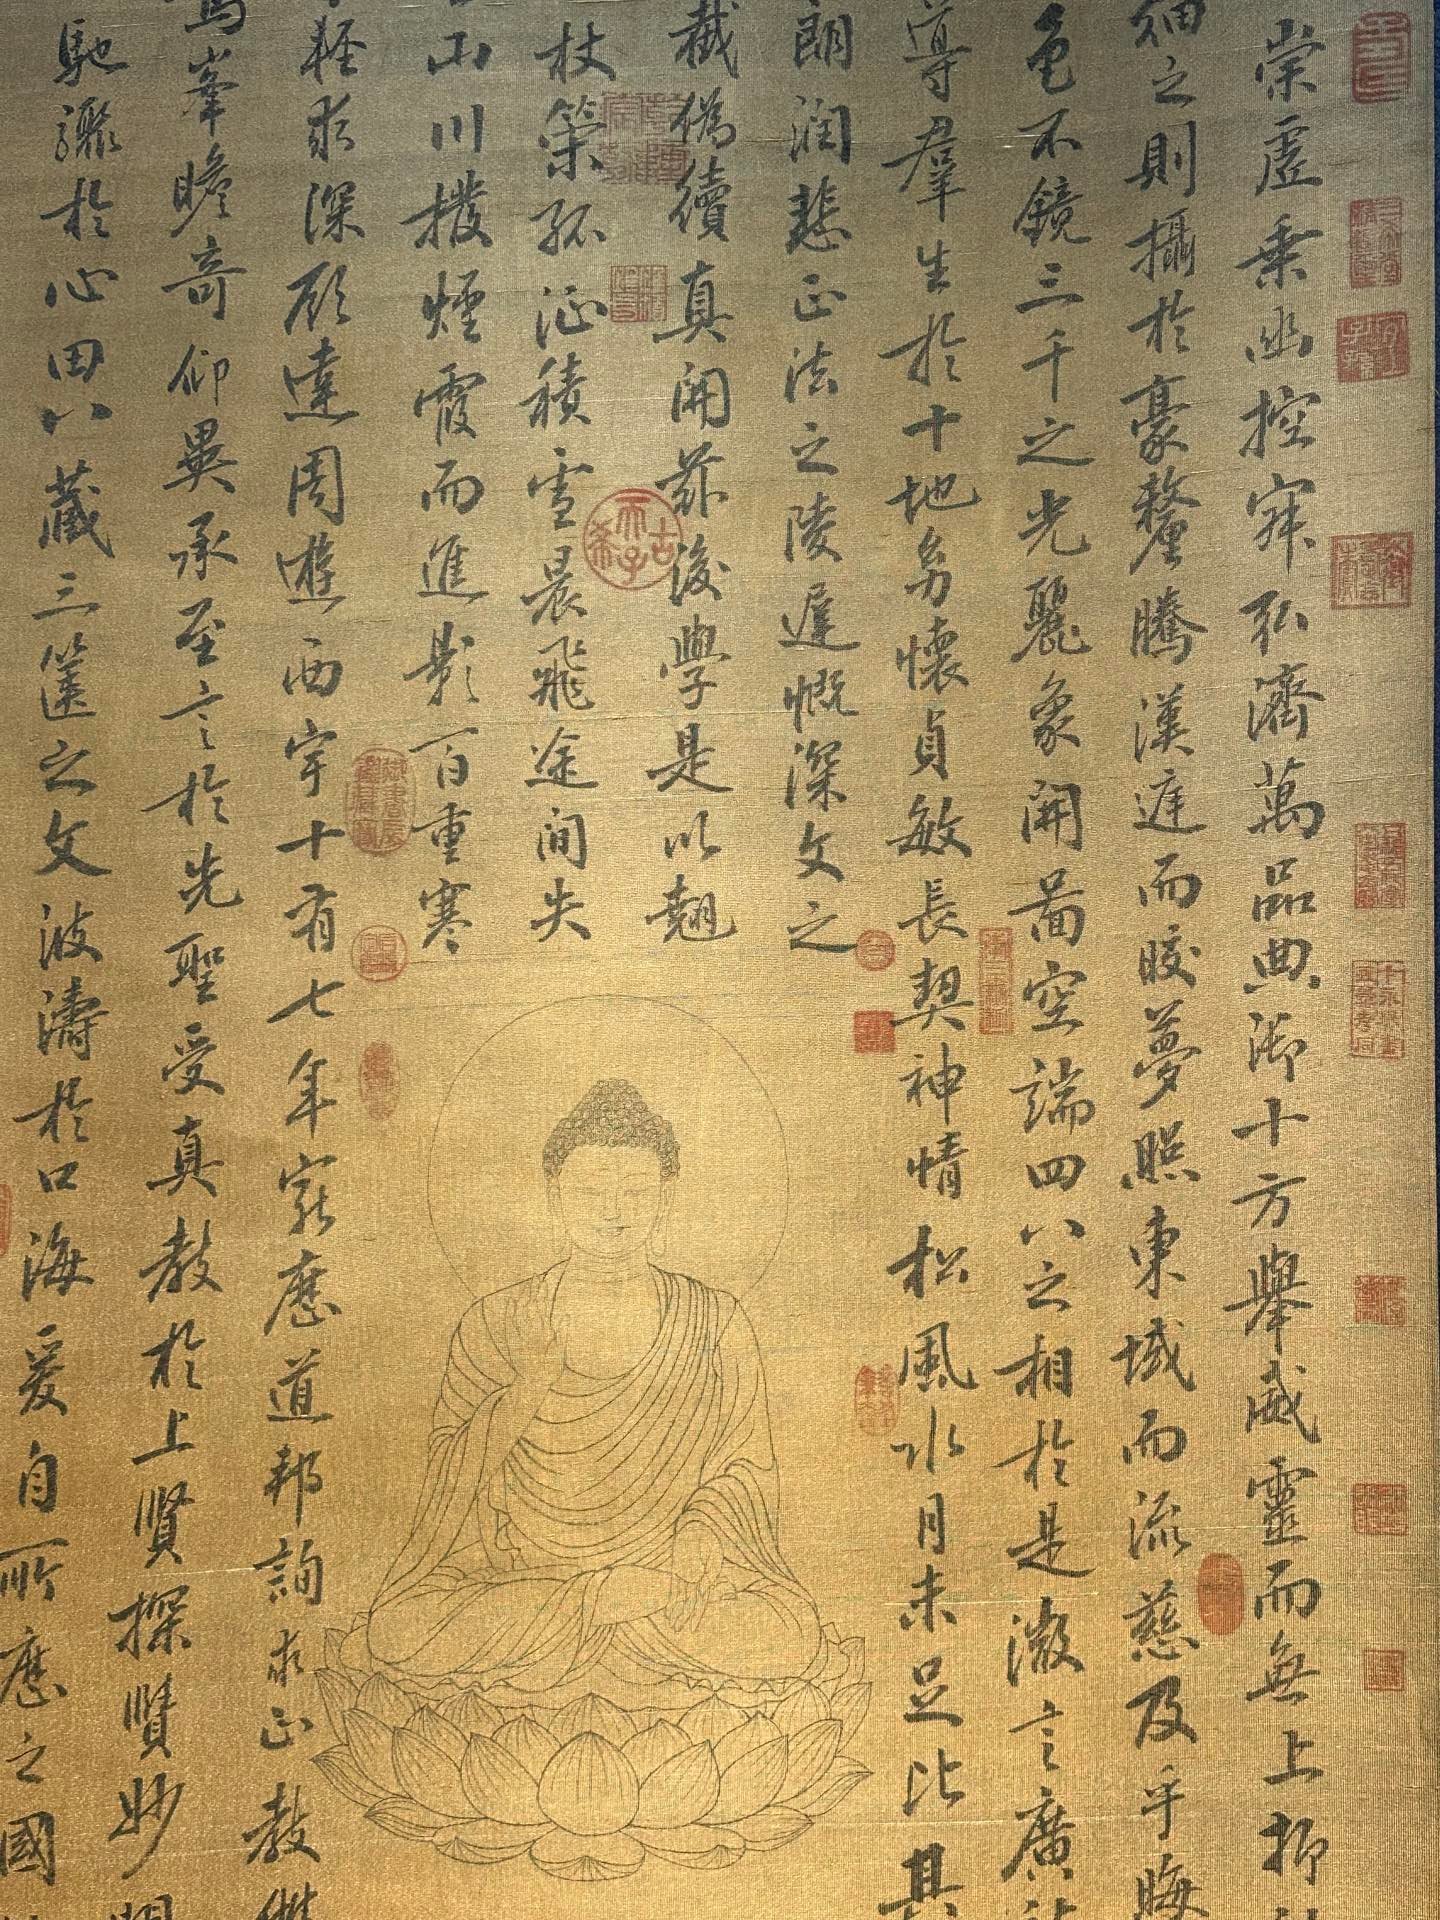 崇虛乘幽控寂弘濟萬品典御十方舉威靈而無上抑
細之則攝於豪釐騰漢庭而皎夢照東域而流慈及乎晦
色不鏡三千之光麗象開圖空端四八之相於是微言廣
導羣生於十地幼懷貞敏長契神情松風水月未足比其
朗潤悲正法之陵遲慨深文之
截偽續真開茲後學是以翹
杖策孤征積雪晨飛途間失
山川撥煙霞而進影百重寒
輕求深願達周遊西宇十有七年窮歷道邦詢求正教
峯瞻奇仰異承至言於先聖受真教於上賢探賾妙
馳驟於心田八藏三篋之文波濤於口海爰自所歷之國
古希天子